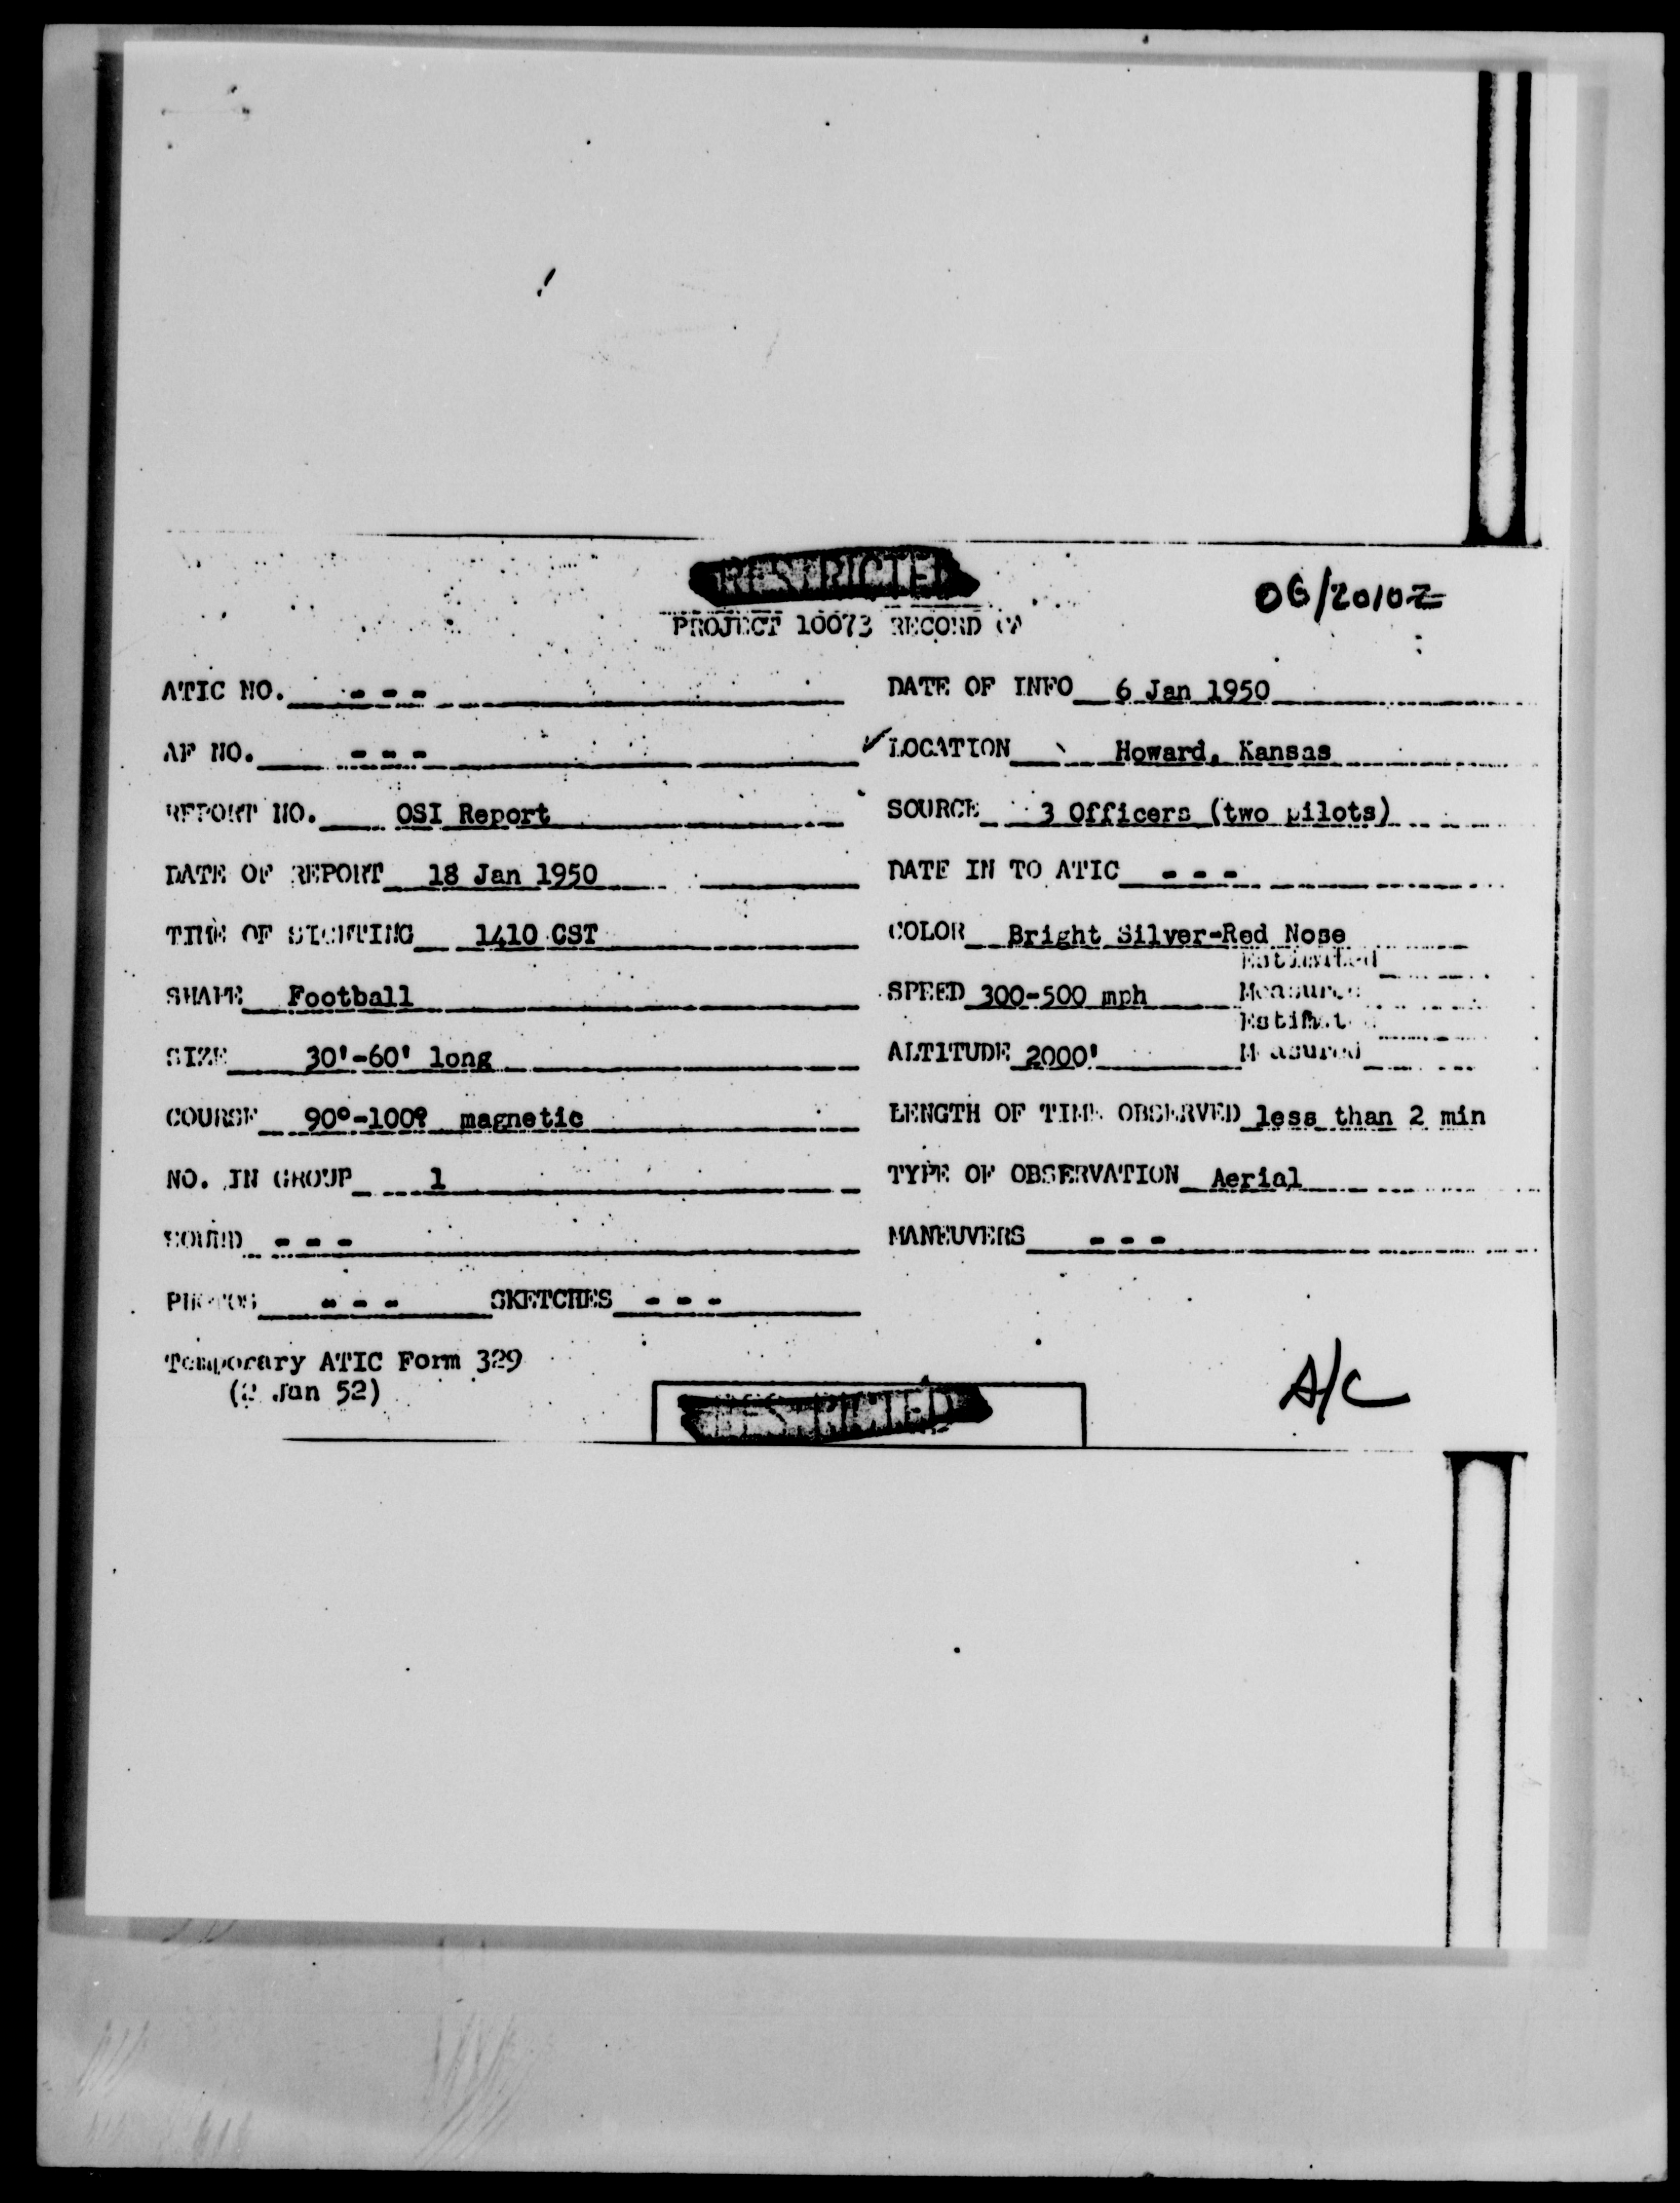 RESTRICTED
06/2010Z
PROJECT 10073 RECORD
ATIC NO. - - - DATE OF INFO 6 Jan 1950
AF NO. - - - ✓LOCATION Howard, Kansas
REPORT NO. OSI Report SOURCE 3 Officers (two pilots)
DATE OF REPORT 18 Jan 1950 DATE IN TO ATIC - - -
TIME OF SIGHTING 1410 CST COLOR Bright Silver-Red Nose
Estimated
SHAPE Football SPEED 300-500 mph Measured
Estimated
SIZE 30'-60' long ALTITUDE 2000' Measured
COURSE 90°-100° magnetic LENGTH OF TIME OBSERVED less than 2 min
NO. IN GROUP 1 TYPE OF OBSERVATION Aerial
SOUND - - - MANEUVERS - - -
PHOTOS - - - SKETCHES - - -
Temporary ATIC Form 329
(2 Jan 52)
A/C
RESTRICTED